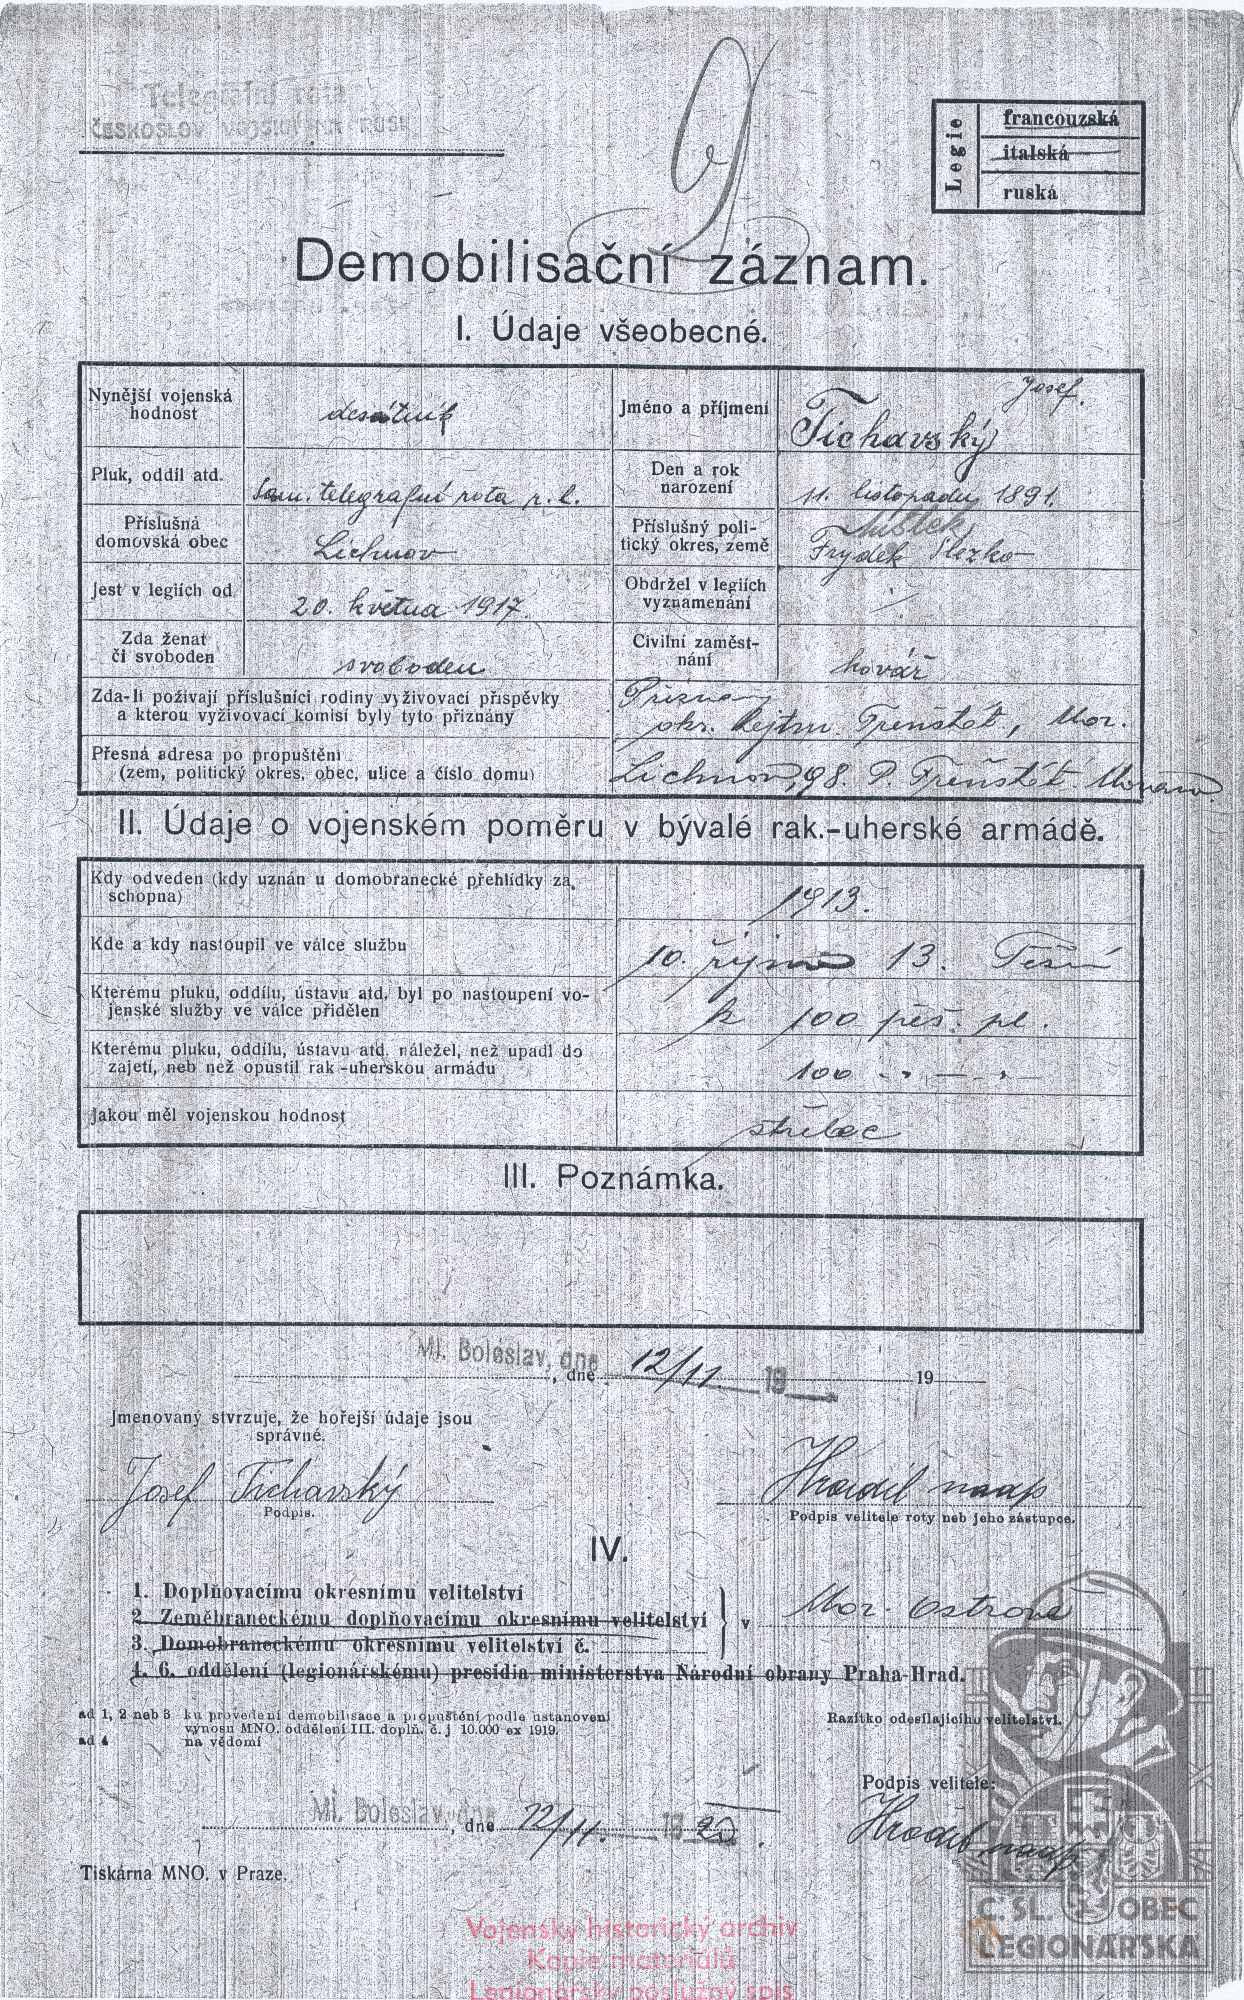 Telegrafní rota
ČESKOSLOV. VOJSKA NA RUSI
9
Legie
francouzská
italská
ruská
Demobilisační záznam.
I. Údaje všeobecné.
Nynější vojenská
hodnost
desátník
Jméno a příjmení
Josef.
Tichavský
Pluk, oddíl atd.
Sam. telegrafní rota r. l.
Den a rok
narození
11. listopadu 1891.
Příslušná
domovská obec
Lichnov
Příslušný poli-
tický okres, země
Místek
Frydek Slezko
Jest v legiích od
20. května 1917.
Obdržel v legiích
vyznamenání
Zda ženat
či svoboden
svoboden
Civilní zaměst-
nání
kovář
Zda-li požívají příslušníci rodiny vyživovací příspěvky
a kterou vyživovací komisí byly tyto přiznány
okr. hejtm. Frenštát, Mor.
Přesná adresa po propuštění
(zem, politický okres, obec, ulice a číslo domu)
Lichnov, 98. P. Frenštát. Morava.
II. Údaje o vojenském poměru v bývalé rak.-uherské armádě.
Kdy odveden (kdy uznán u domobranecké přehlídky za
schopna)
1913.
Kde a kdy nastoupil ve válce službu
10. října 13. Těšín
Kterému pluku, oddílu, ústavu atd. byl po nastoupení vo-
jenské služby ve válce přidělen
k 100 pěš. pl.
Kterému pluku, oddílu, ústavu atd. náležel, než upadl do
zajetí, neb než opustil rak-uherskou armádu
100 -„- -„-
Jakou měl vojenskou hodnost
střelec
III. Poznámka.
Ml. Boleslav, dne
, dne 12/11. 19 19
Jmenovaný stvrzuje, že hořejší údaje jsou
správné.
Josef Tichavský
Podpis.
Hradil
Podpis velitele roty neb jeho zástupce.
IV.
1. Doplňovacímu okresnímu velitelství
2. Zeměbraneckému doplňovacímu okresnímu velitelství
3. Domobraneckému okresnímu velitelství č.
v Mor. Ostrova
4. 6. oddělení (legionářskému) presidia ministerstva Národní obrany Praha-Hrad.
ad 1, 2 neb 3 ku provedení demobilisace a propuštění podle ustanovení
výnosu MNO. oddělení III. doplň. č. j 10.000 ex 1919.
ad 4 na vědomí
Razítko odesílajícího velitelství.
Podpis velitele:
Hradil
Ml. Boleslav, dne
, dne 12/11. 19 20.
Tiskárna MNO. v Praze.
Vojenský historický archiv
Kopie materiálů
Legionářský poslužný spis
Č. SL. OBEC
LEGIONÁŘSKÁ